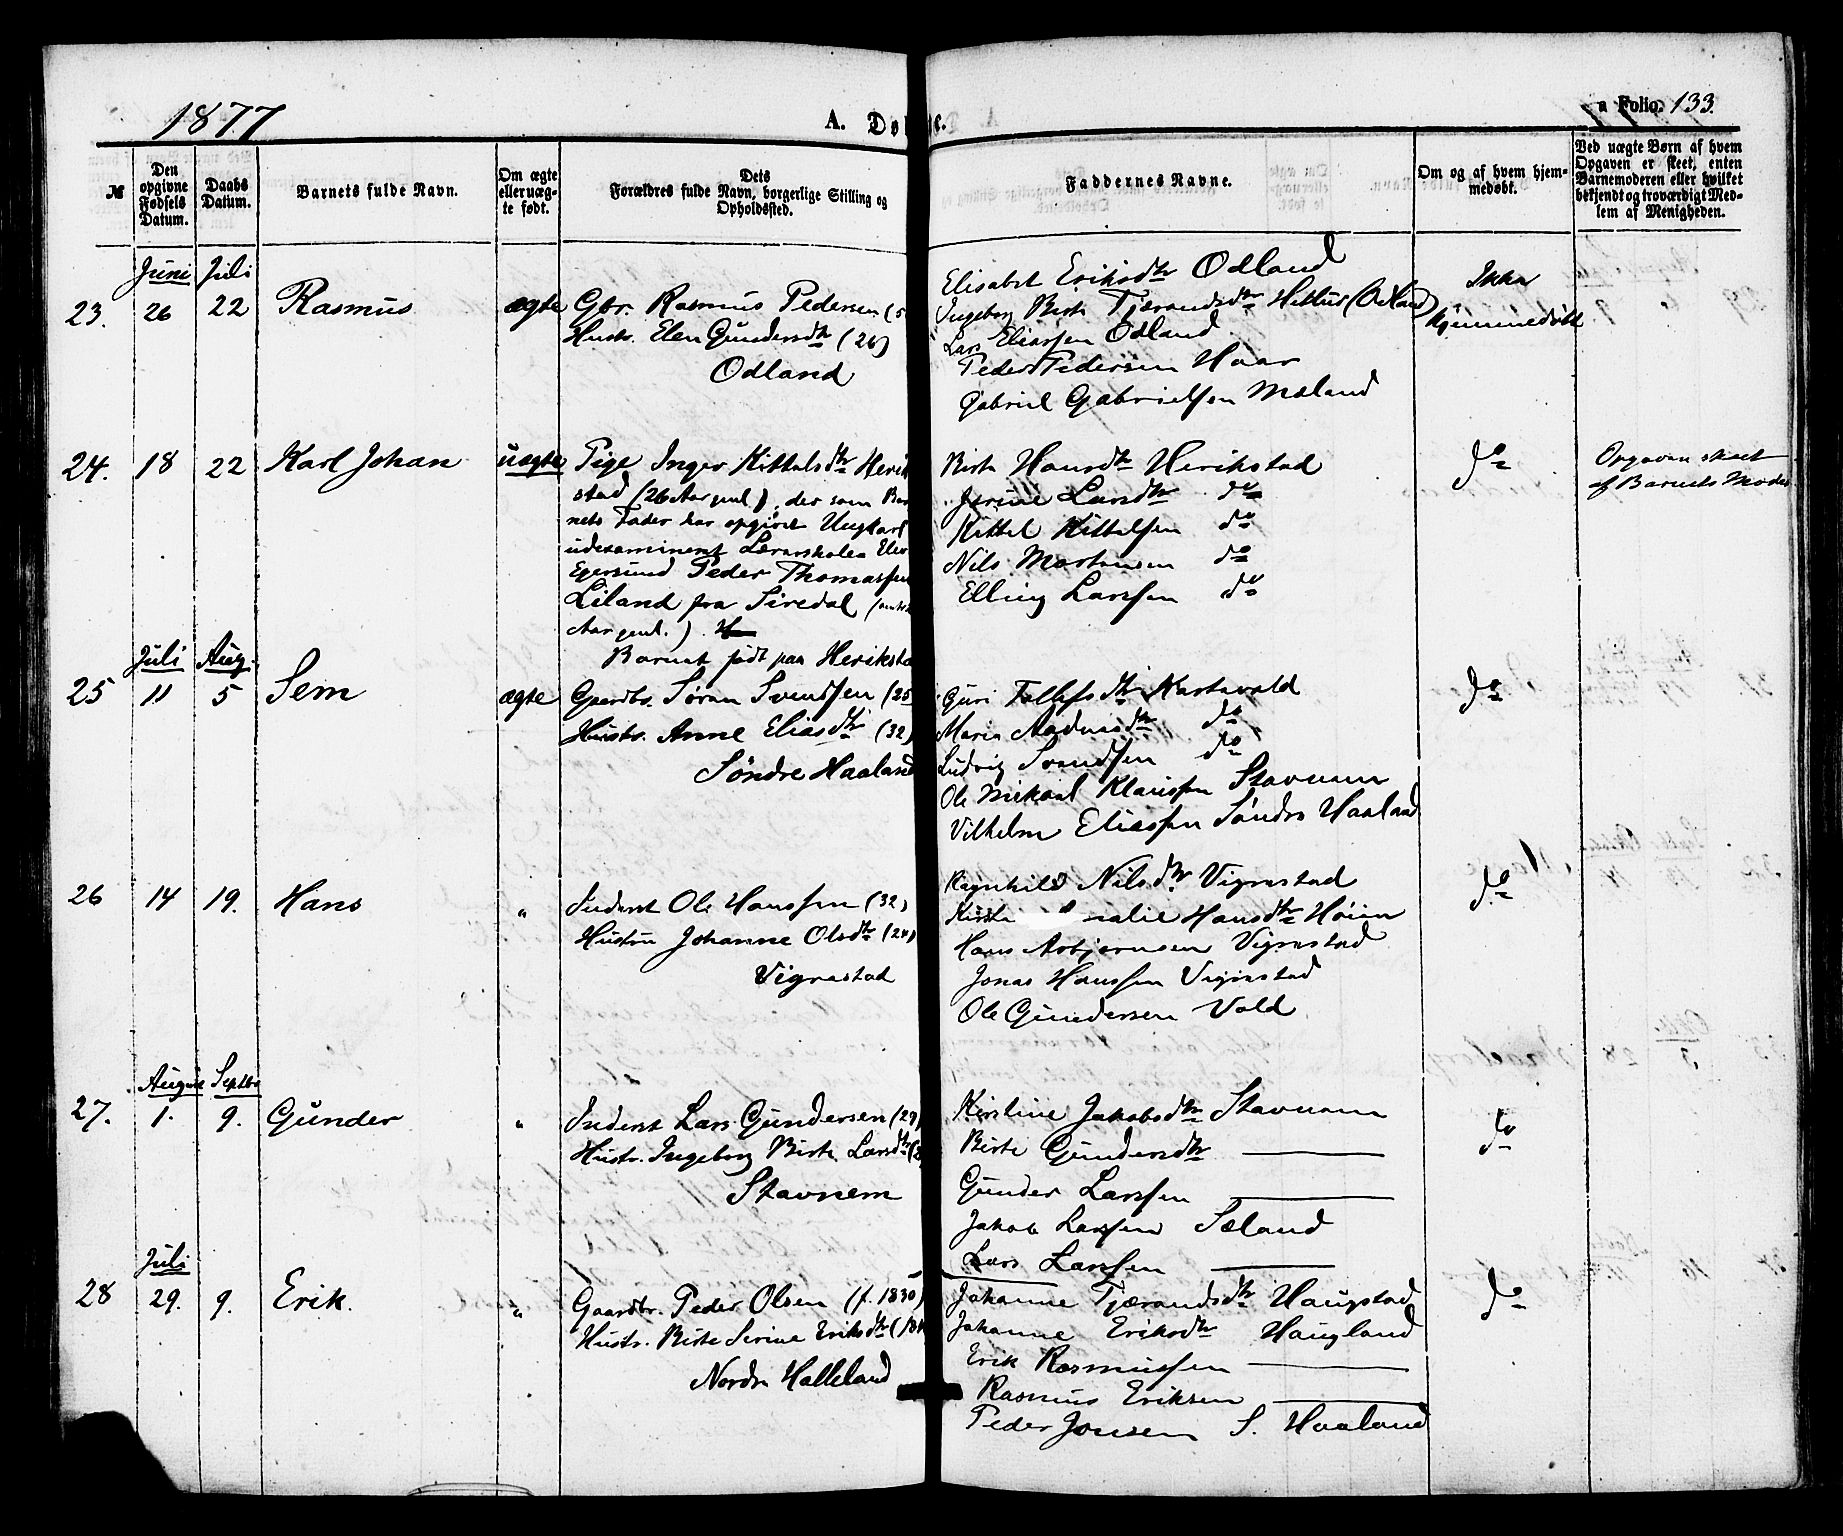 1877
A. Døbte.
a Folio. 133.
№
Den opgivne Fødsels Datum.
Daabs Datum.
Barnets fulde Navn.
Om ægte eller uægte født.
Dets Forældres fulde Navn, borgerlige Stilling og Opholdssted.
Faddernes Navne.
Om og af hvem hjemmedøbt.
Ved uægte Børn af hvem Opgaven er skeet, enten Barnemoderen eller hvilket bekjendt og troværdigt Medlem af Menigheden.
Juni Juli
23. 26 22 Rasmus ægte Gbr. Rasmus Pedersen (5
Hustr. Elen Gundersdtr (26)
Odland
Elisabet Eriksdtr Odland
Ingeborg Birte Tjærandsdtr (Odland)
Lars Eliassen Odland
Peder Pedersen Haar
Gabriel Gabrielsen Mæland
Ikke
hjemmedøbt
24. 18 22 Karl Johan uægte Pige Inger Kittelsdtr Herik
stad (26 Aar gml.), der som Bar
nets Fader har opgivet Ungkarl
udexamineret Lærerskolen Elev
Egersund Peder Thomassen
Liland fra Siredal
Aar gml.).
Barnet født paa Heriksta
Birte Hansdtr Herikstad
Serine Larsdtr do
Kittel Kittelsen do
Nils Mortensen do
Elling Larssen do
do
Opgaven skeet
af Barnets Moder
Juli Aug.
25 11 5 Sem ægte Gaardbr. Søren Svendsen (25
Hustr. Anne Eliasdtr (32)
Søndre Haaland
Guri Tollefsdtr Kartavold
Maria Aadnesdtr do
Ludvig Svendsen do
Ole Mikael Klaussen Stavnem
Vilhelm Eliassen Søndre Haaland
do
26 14 19. Hans " Inderst Ole Hanssen (32)
Hustru Johanne Olsdtr (24)
Vigrestad
Ragnhild Nilsdtr Vigrestad
Kirsti nalie Hansdtr Høien
Hans Asbjørnsen Vigrestad
Jonas Hanssen Vigrestad
Ole Gundersen Vold
do
August Septbr
27. 1. 9. Gunder " Inderst Lars Gundersen (29)
Hustr. Ingeborg Birte Larsdtr (2
Stavnem
Kirstine Jakobsdtr Stavnem
Birte Gundersdtr —
Gunder Larssen —
Jakob Larssen Sæland
Lars Larssen —
do
Juli
28 29. 9. Erik. " Gaardbr. Peder Olsen (f. 1830)
Hustr. Birte Serine Eriksdtr (184
Nordre Haaland
Johanne Tjærandsdtr Haugstad
Johanne Eriksdtr Haugland
Erik Rasmussen —
Rasmus Eriksen —
Peder Jonsen S. Haaland
do